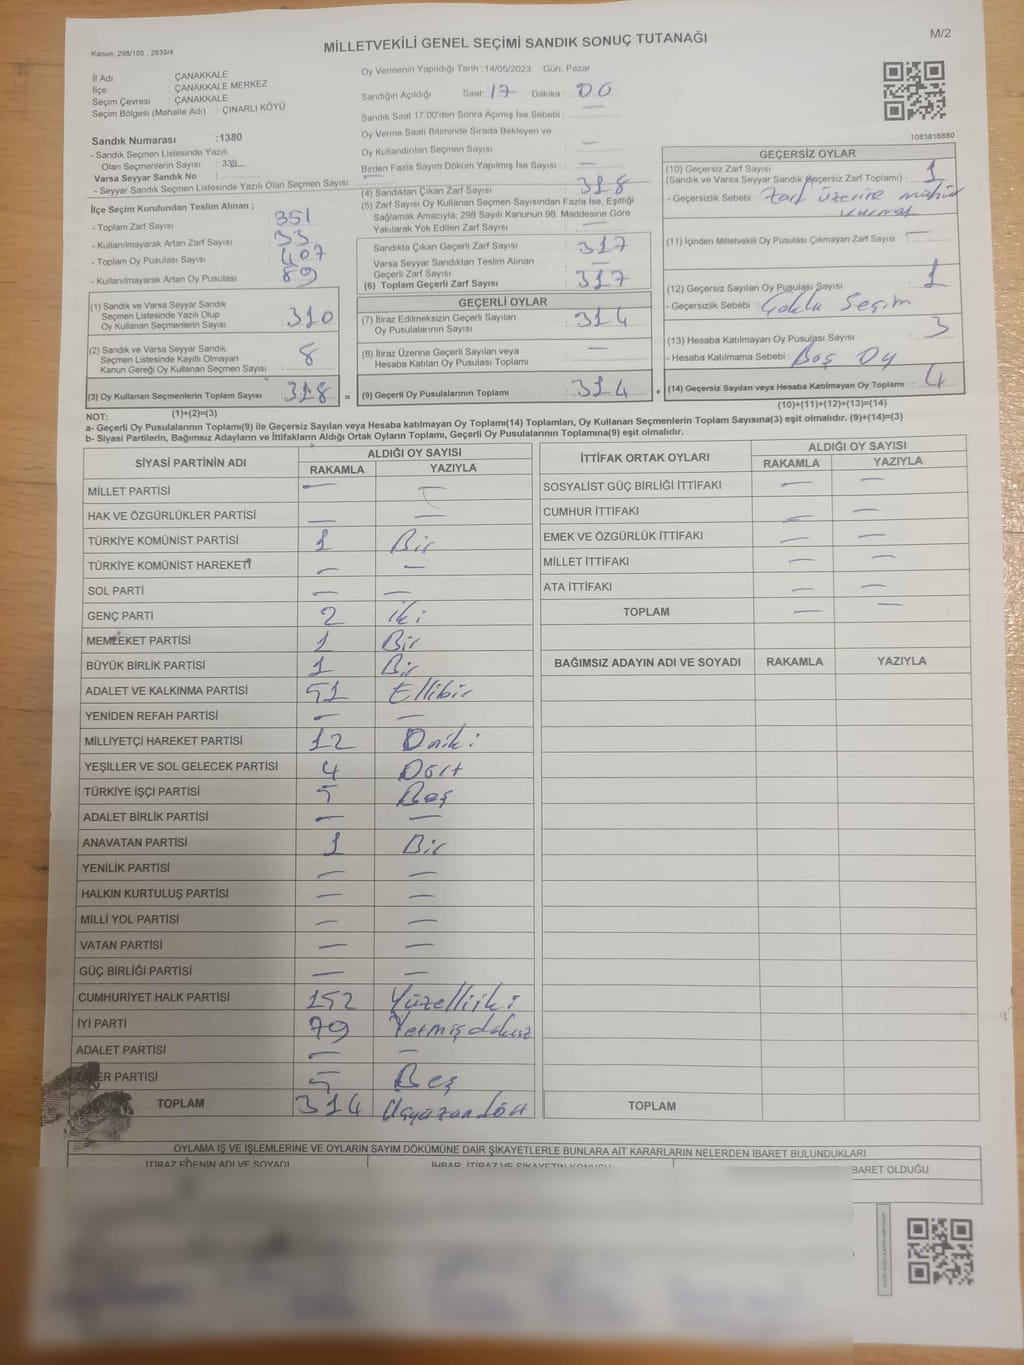 MİLLETVEKİLİ GENEL SEÇİMİ SANDIK SONUÇ TUTANAĞI
M/2
Kanun: 298/105 , 2839/4
İl Adı : ÇANAKKALE
İlçe : ÇANAKKALE MERKEZ
Seçim Çevresi : ÇANAKKALE
Seçim Bölgesi (Mahalle Adı) : ÇINARLI KÖYÜ
Sandık Numarası :1380
- Sandık Seçmen Listesinde Yazılı
Olan Seçmenlerin Sayısı : 339
Varsa Seyyar Sandık No :
- Seyyar Sandık Seçmen Listesinde Yazılı Olan Seçmen Sayısı:
İlçe Seçim Kurulundan Teslim Alınan ;
- Toplam Zarf Sayısı : 351
- Kullanılmayarak Artan Zarf Sayısı : 33
- Toplam Oy Pusulası Sayısı : 407
- Kullanılmayarak Artan Oy Pusulası : 89
(1) Sandık ve Varsa Seyyar Sandık
Seçmen Listesinde Yazılı Olup
Oy Kullanan Seçmenlerin Sayısı : 310
(2) Sandık ve Varsa Seyyar Sandık
Seçmen Listesinde Kayıtlı Olmayan
Kanun Gereği Oy Kullanan Seçmen Sayısı : 8
(3) Oy Kullanan Seçmenlerin Toplam Sayısı : 318
Oy Vermenin Yapıldığı Tarih :14/05/2023 Gün: Pazar
Sandığın Açıldığı Saat: 17 Dakika : 00
Sandık Saat 17:00'den Sonra Açımış İse Sebebi : —
Oy Verme Saati Bitiminde Sırada Bekleyen ve
Oy Kullandırılan Seçmen Sayısı : —
Birden Fazla Sayım Döküm Yapılmış İse Sayısı : —
(4) Sandıktan Çıkan Zarf Sayısı : 318
(5) Zarf Sayısı Oy Kullanan Seçmen Sayısından Fazla İse, Eşitliği
Sağlamak Amacıyla; 298 Sayılı Kanunun 98. Maddesine Göre
Yakılarak Yok Edilen Zarf Sayısı : —
Sandıkta Çıkan Geçerli Zarf Sayısı : 317
Varsa Seyyar Sandıktan Teslim Alınan
Geçerli Zarf Sayısı : —
(6) Toplam Geçerli Zarf Sayısı : 317
GEÇERLİ OYLAR
(7) İtiraz Edilmeksizin Geçerli Sayılan
Oy Pusulalarının Sayısı : 314
(8) İtiraz Üzerine Geçerli Sayılan veya
Hesaba Katılan Oy Pusulası Toplamı : —
= (9) Geçerli Oy Pusulalarının Toplamı : 314 +
1083816880
GEÇERSİZ OYLAR
(10) Geçersiz Zarf Sayısı
(Sandık ve Varsa Seyyar Sandık Geçersiz Zarf Toplamı) : 1
- Geçersizlik Sebebi : Zarf üzerine mühür
vurmak
(11) İçinden Milletvekili Oy Pusulası Çıkmayan Zarf Sayısı : —
(12) Geçersiz Sayılan Oy Pusulası Sayısı : 1
- Geçersizlik Sebebi : Çoklu Seçim
(13) Hesaba Katılmayan Oy Pusulası Sayısı : 3
- Hesaba Katılmama Sebebi : Boş Oy
(14) Geçersiz Sayılan veya Hesaba Katılmayan Oy Toplamı : 4
NOT: (1)+(2)=(3)
(10)+(11)+(12)+(13)=(14)
a- Geçerli Oy Pusulalarının Toplamı(9) ile Geçersiz Sayılan veya Hesaba katılmayan Oy Toplamı(14) Toplamları, Oy Kullanan Seçmenlerin Toplam Sayısına(3) eşit olmalıdır. (9)+(14)=(3)
b- Siyasi Partilerin, Bağımsız Adayların ve İttifakların Aldığı Ortak Oyların Toplamı, Geçerli Oy Pusulalarının Toplamına(9) eşit olmalıdır.
SİYASİ PARTİNİN ADI ALDIĞI OY SAYISI
RAKAMLA YAZIYLA
MİLLET PARTİSİ — —
HAK VE ÖZGÜRLÜKLER PARTİSİ — —
TÜRKİYE KOMÜNİST PARTİSİ 1 Bir
TÜRKİYE KOMÜNİST HAREKETİ — —
SOL PARTİ — —
GENÇ PARTİ 2 iki
MEMLEKET PARTİSİ 1 Bir
BÜYÜK BİRLİK PARTİSİ 1 Bir
ADALET VE KALKINMA PARTİSİ 51 Ellibir
YENİDEN REFAH PARTİSİ — —
MİLLİYETÇİ HAREKET PARTİSİ 12 Oniki
YEŞİLLER VE SOL GELECEK PARTİSİ 4 Dört
TÜRKİYE İŞÇİ PARTİSİ 5 Beş
ADALET BİRLİK PARTİSİ — —
ANAVATAN PARTİSİ 1 Bir
YENİLİK PARTİSİ — —
HALKIN KURTULUŞ PARTİSİ — —
MİLLİ YOL PARTİSİ — —
VATAN PARTİSİ — —
GÜÇ BİRLİĞİ PARTİSİ — —
CUMHURİYET HALK PARTİSİ 152 Yüzelliiki
İYİ PARTİ 79 Yetmişdokuz
ADALET PARTİSİ — —
ZAFER PARTİSİ 5 Beş
TOPLAM 314 Üçyüzondört
İTTİFAK ORTAK OYLARI ALDIĞI OY SAYISI
RAKAMLA YAZIYLA
SOSYALİST GÜÇ BİRLİĞİ İTTİFAKI — —
CUMHUR İTTİFAKI — —
EMEK VE ÖZGÜRLÜK İTTİFAKI — —
MİLLET İTTİFAKI — —
ATA İTTİFAKI — —
TOPLAM — —
BAĞIMSIZ ADAYIN ADI VE SOYADI RAKAMLA YAZIYLA
TOPLAM
OYLAMA İŞ VE İŞLEMLERİNE VE OYLARIN SAYIM DÖKÜMÜNE DAİR ŞİKAYETLERLE BUNLARA AİT KARARLARIN NELERDEN İBARET BULUNDUKLARI
İTİRAZ EDENİN ADI VE SOYADI İHBAR, İTİRAZ VE ŞİKAYETİN KONUSU BARET OLDUĞU